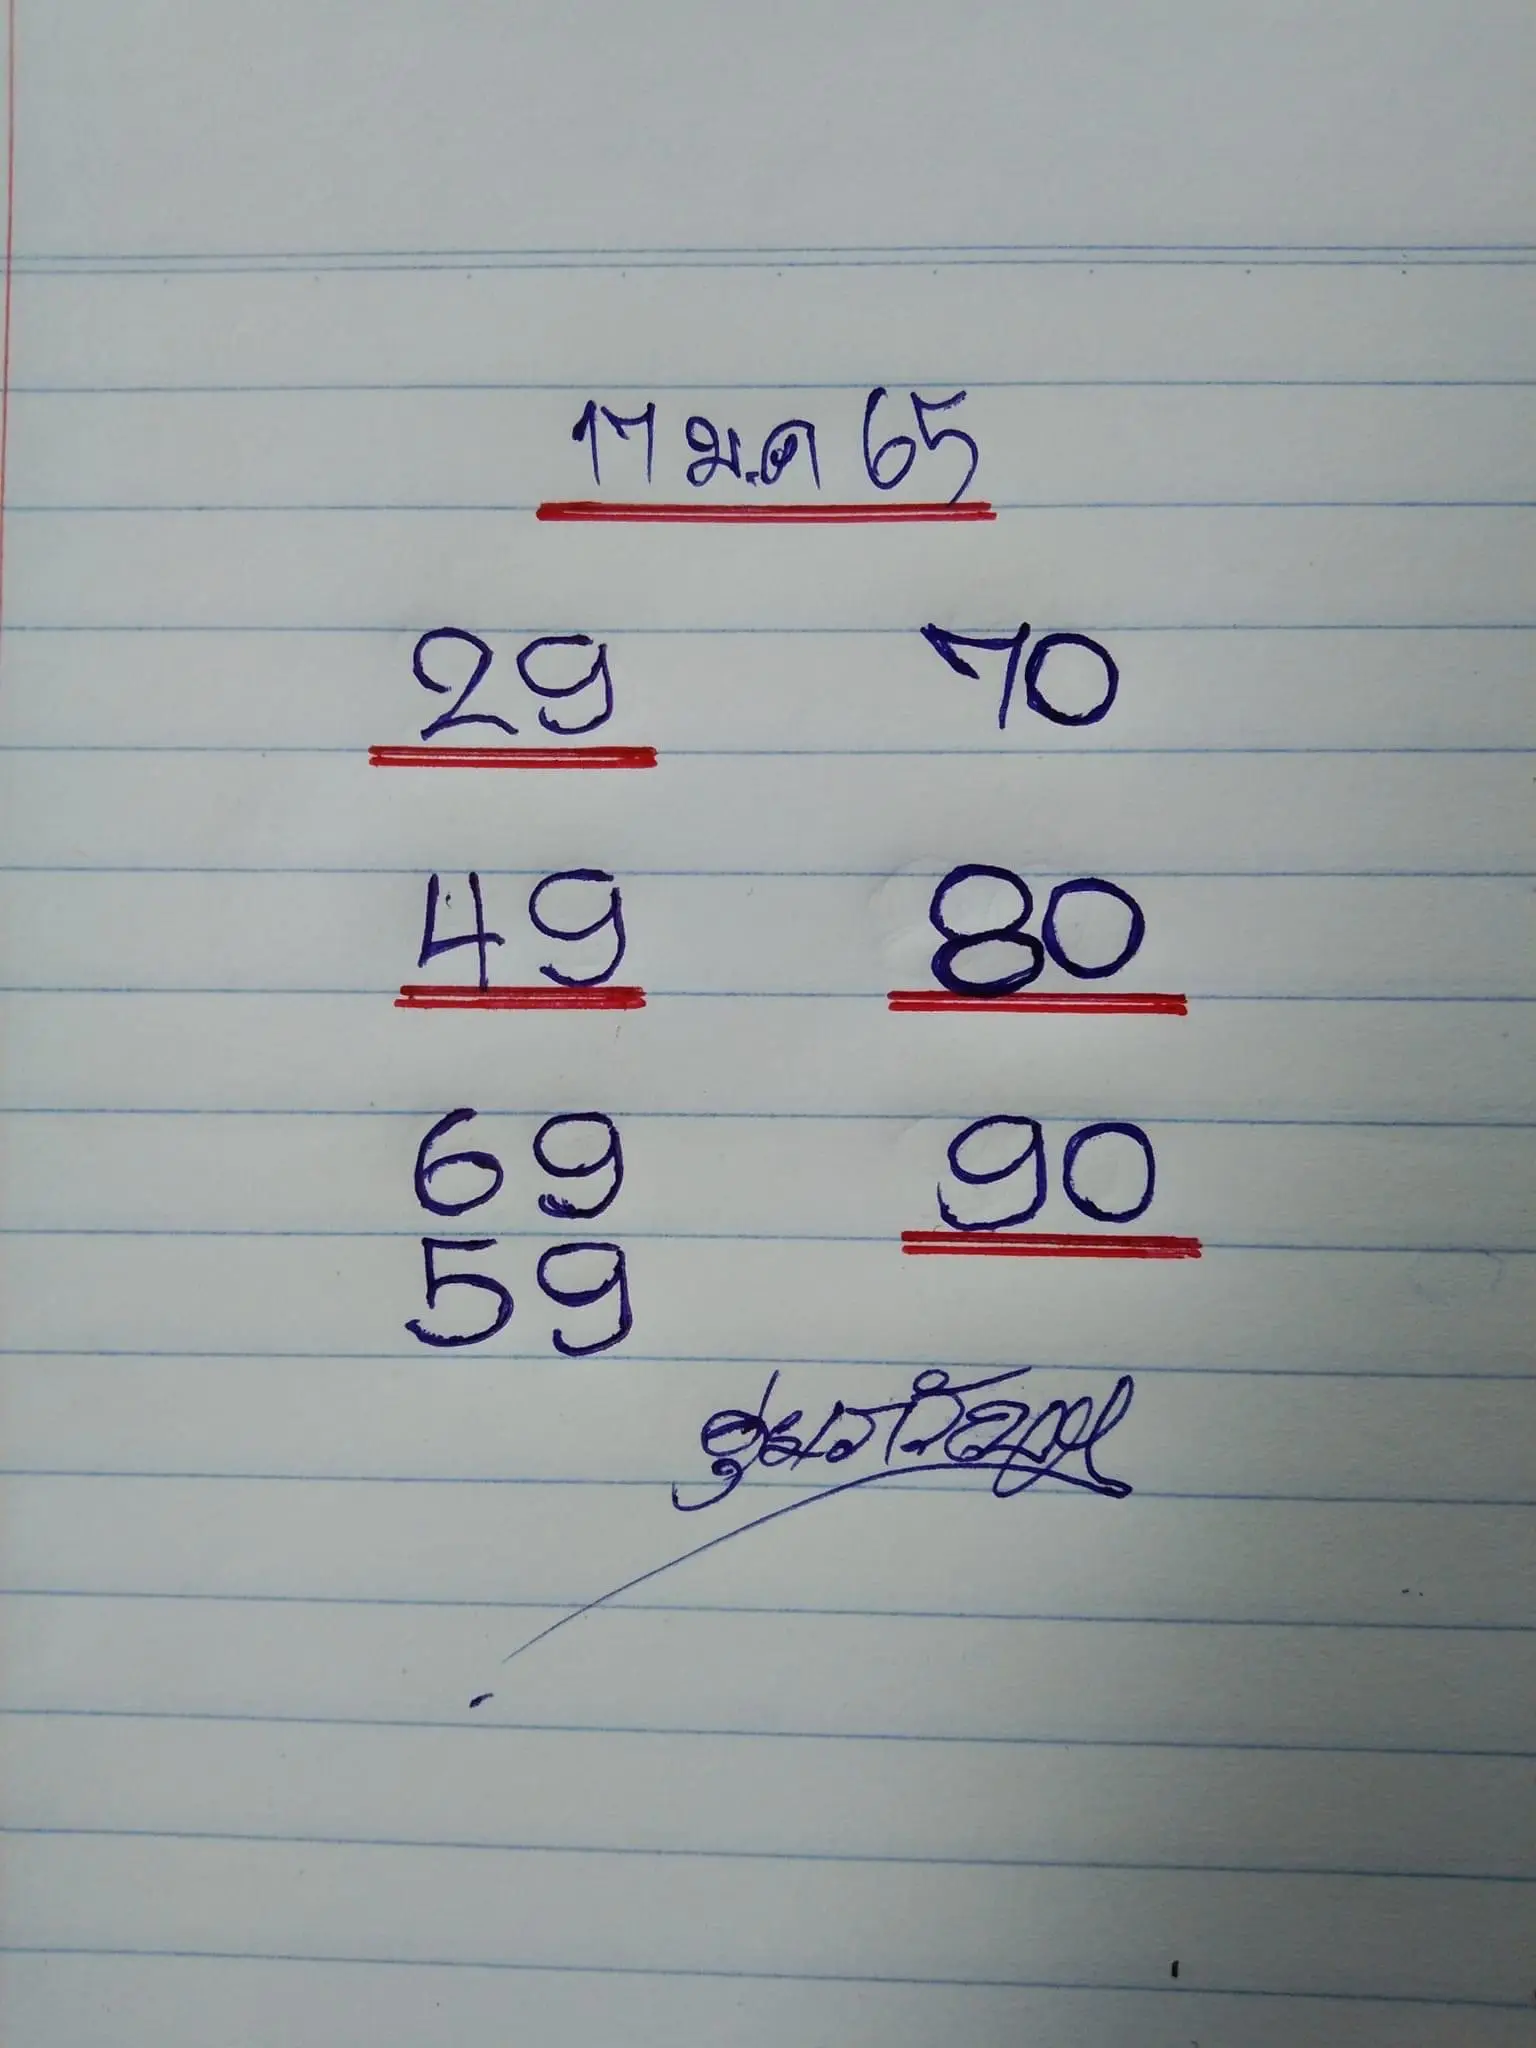 17 ม.ค 65
29 70
49 80
69 90
59